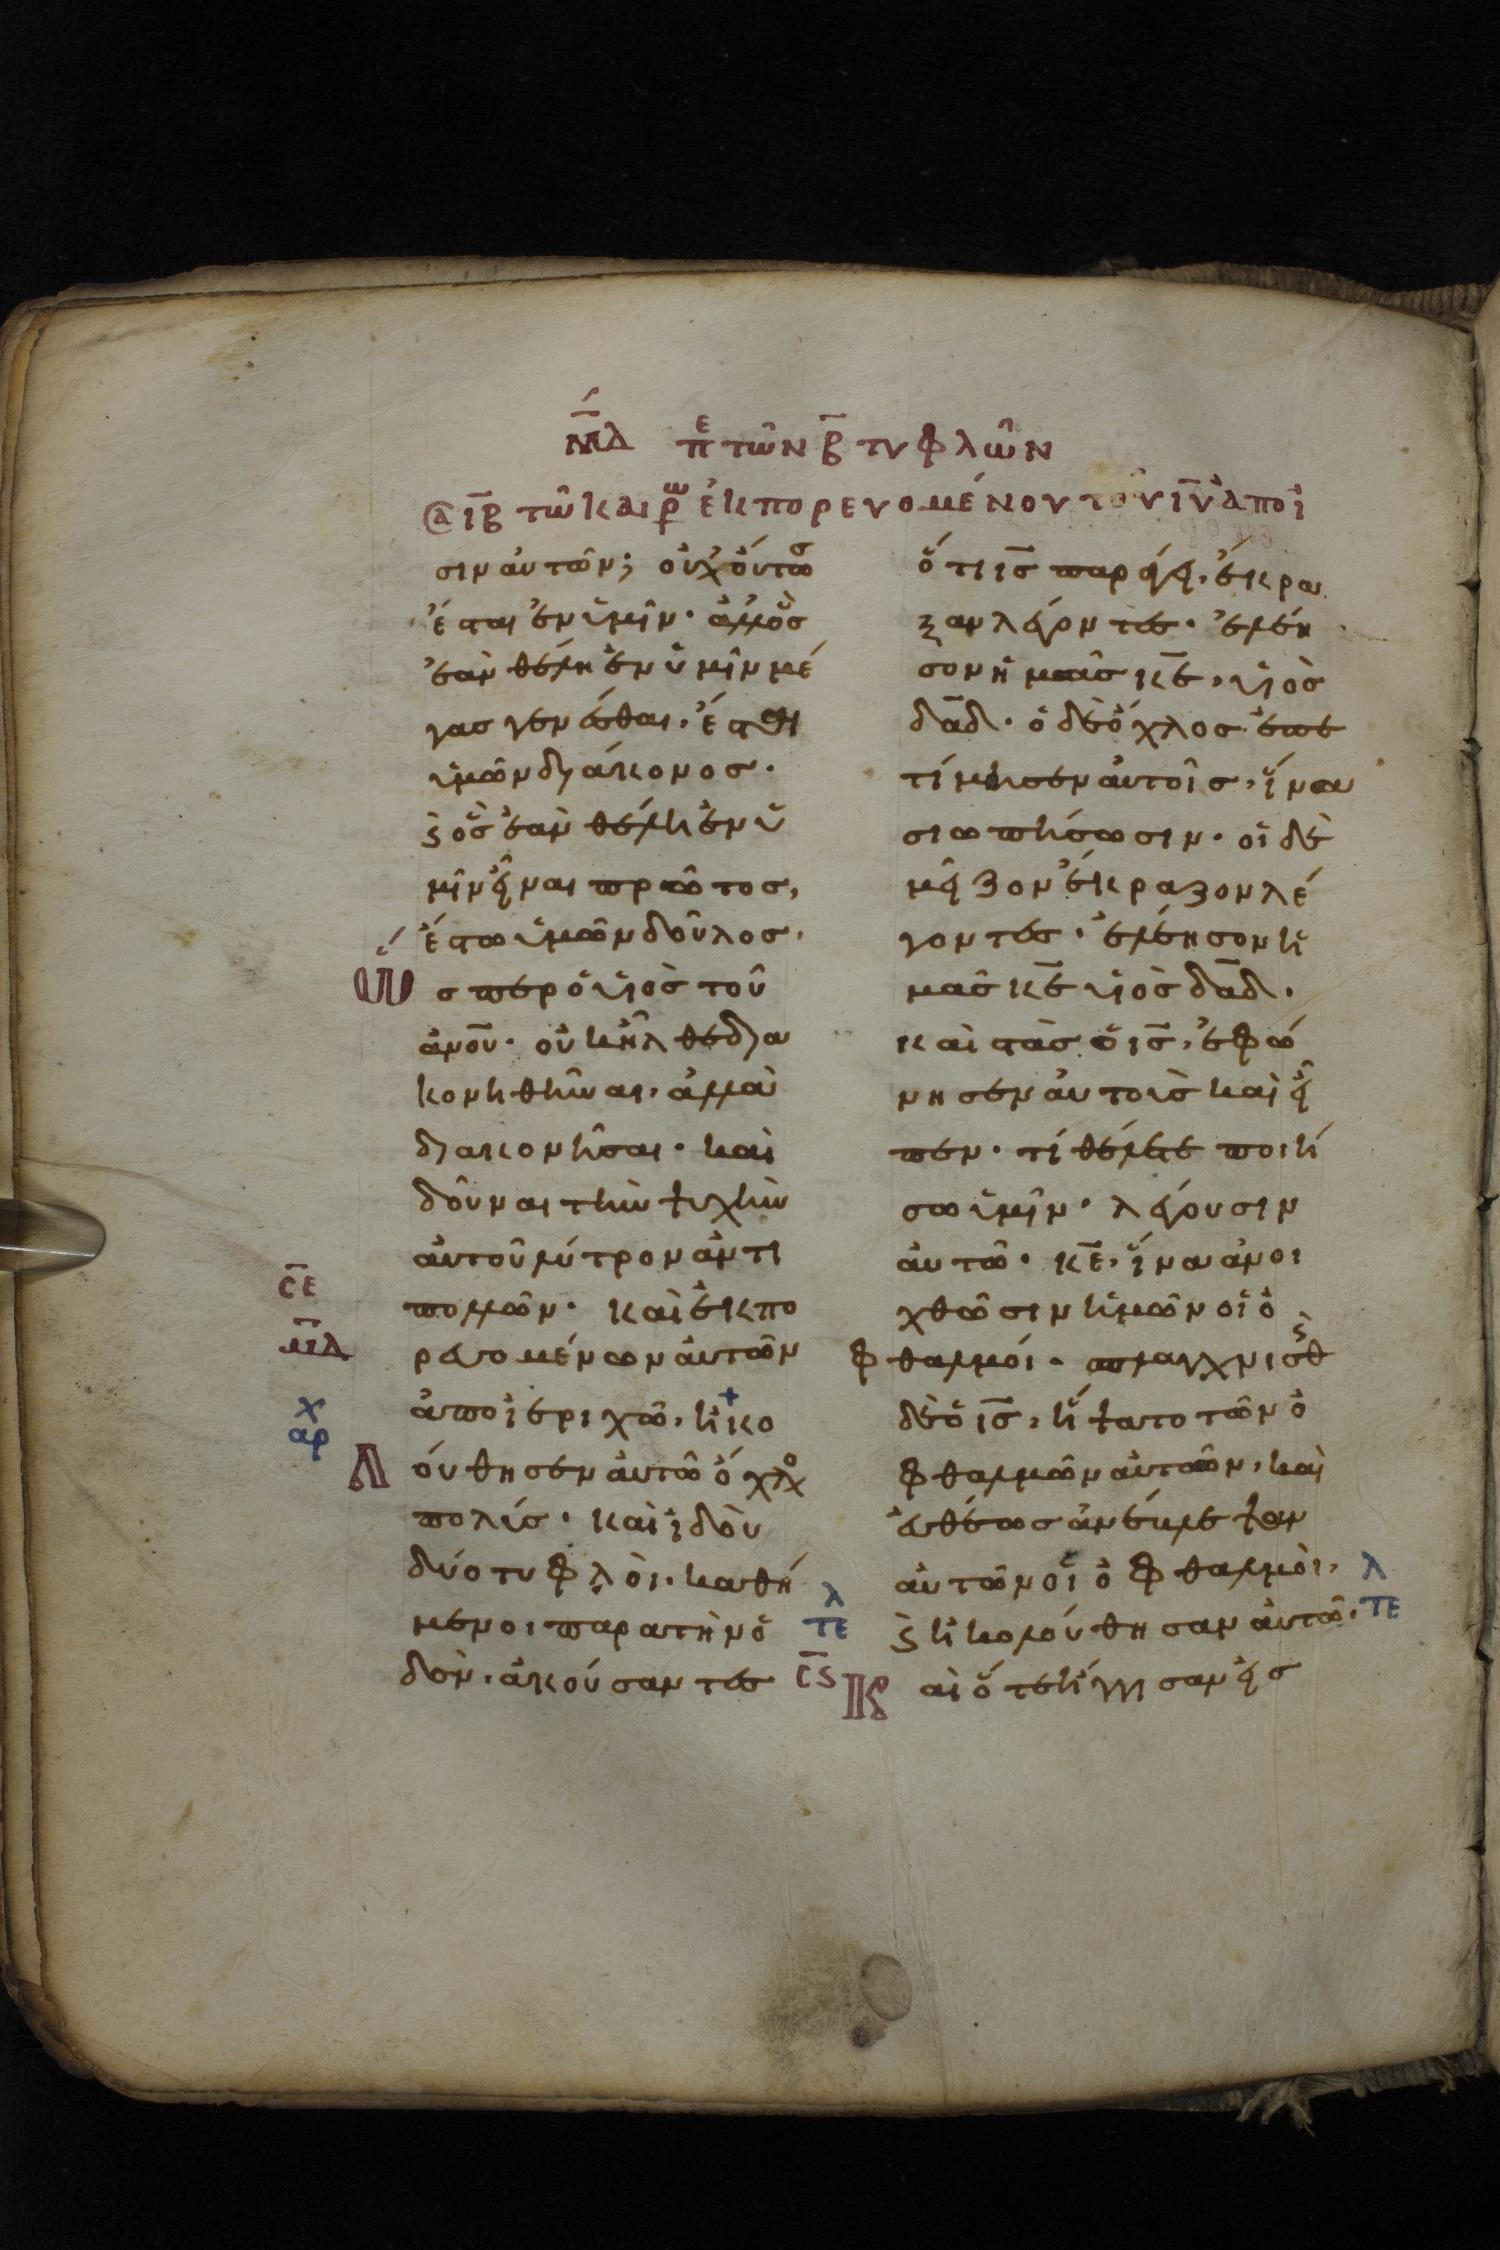 μ̅δ πε τῶν β̅ τυφλῶν
ι̅β τῷ καιρῷ ἐκπορευομένου τοῦ ι̅υ ἀπὸ ἰ
σιν αὐτῶν; οὐχ οὕτως
ἔσται ἐν ὑμῖν· ἀλλ' ὃς
ἐὰν θέλη ἐν ὑμῖν μέ
γας γενέσθαι, ἔσται
ὑμῶν διάκονος·
ϗ ὃς ἐὰν θέλη ἐν ὑ
μῖν εἶναι πρῶτος,
ἔστω ὑμῶν δοῦλος·
Ὥσπερ ὁ υἱὸς τοῦ
ἀνο̅υ· οὐκ ἦλθε δια
κονηθῆναι, ἀλλὰ
διακονῆσαι· καὶ
δοῦναι τὴν ψυχὴν
αὐτοῦ λύτρον ἀντὶ
ς̅ε
πολλῶν· καὶ ἐκπο
μ̅δ
ρευομένων αὐτῶν
χ
αρ
ἀπὸ ἰεριχῶ, ἠ+κο
λούθησεν αὐτῶ ὄχλο
πολύς· καὶ ἰδοὺ
δύο τυφλοὶ, καθή
μενοι παρὰ τὴν ὁ
δὸν, ἀκούσαντες
ὅτι ι̅ς παράγει, ἔκρα
ξαν λέγοντες· ἐλέη
σον ἡμᾶς κ̅ε, υἱὸς
δα̅δ· ὁ δὲ ὄχλος ἐπε
τίμησεν αὐτοῖς, ἵνα
σιωπήσωσιν· οἱ δὲ
μεῖζον ἔκραζον λέ
γοντες· ἐλέησον ἡ
μᾶς κ̅ε υἱὸς δα̅δ·
καὶ στὰς ὁ ι̅ς, ἐφώ
νησεν αὐτοὺς καὶ εἶ
πεν· τί θέλετε ποιή
σω ὑμῖν· λέγουσιν
αὐτῶ· κ̅ε, ἵνα ἀνοι
χθῶσιν ἡμῶν οἱ ὀ
φθαλμοί· σπλαγχνισθεὶς
δὲ ὁ ι̅ς, ἥψατο τῶν ὀ
φθαλμῶν αὐτῶν, καὶ
εὐθέως ἀνέβλεψαν
αὐτῶν οἱ ὀφθαλμοὶ,
λ
τε
ϗ ἠκολούθησαν αὐτῶ·
λ
τε
ς̅ϛ
Καὶ ὅτε ἤγγισαν εἰς